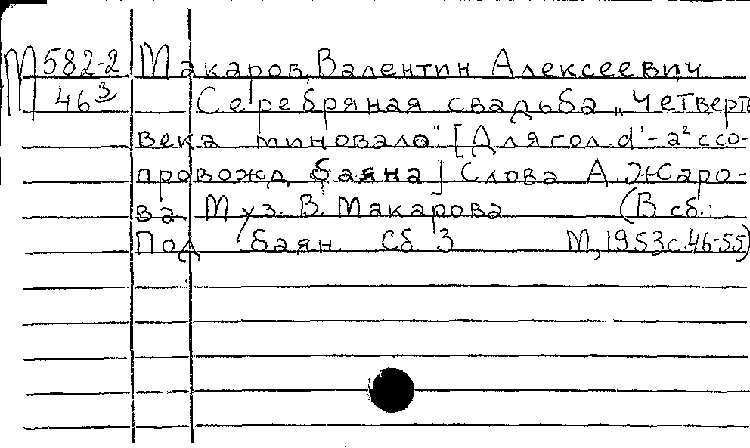 М 582-2 Макаров, Валентин Алексеевич
46³ Серебряная свадьба „Четверть
века миновало" [Для гол. d¹-a² с со-
провожд. баяна] Слова А. Жаро-
ва Муз. В. Макарова (В сб.:
Под баян. Сб 3 М, 1953 с. 46-55)